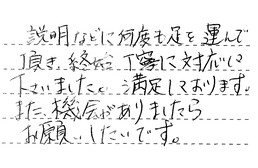 説明などに何度も足を運んで
頂き、終始丁寧に対応して
下さいました。満足しております。
また機会がありましたら
お願いしたいです。